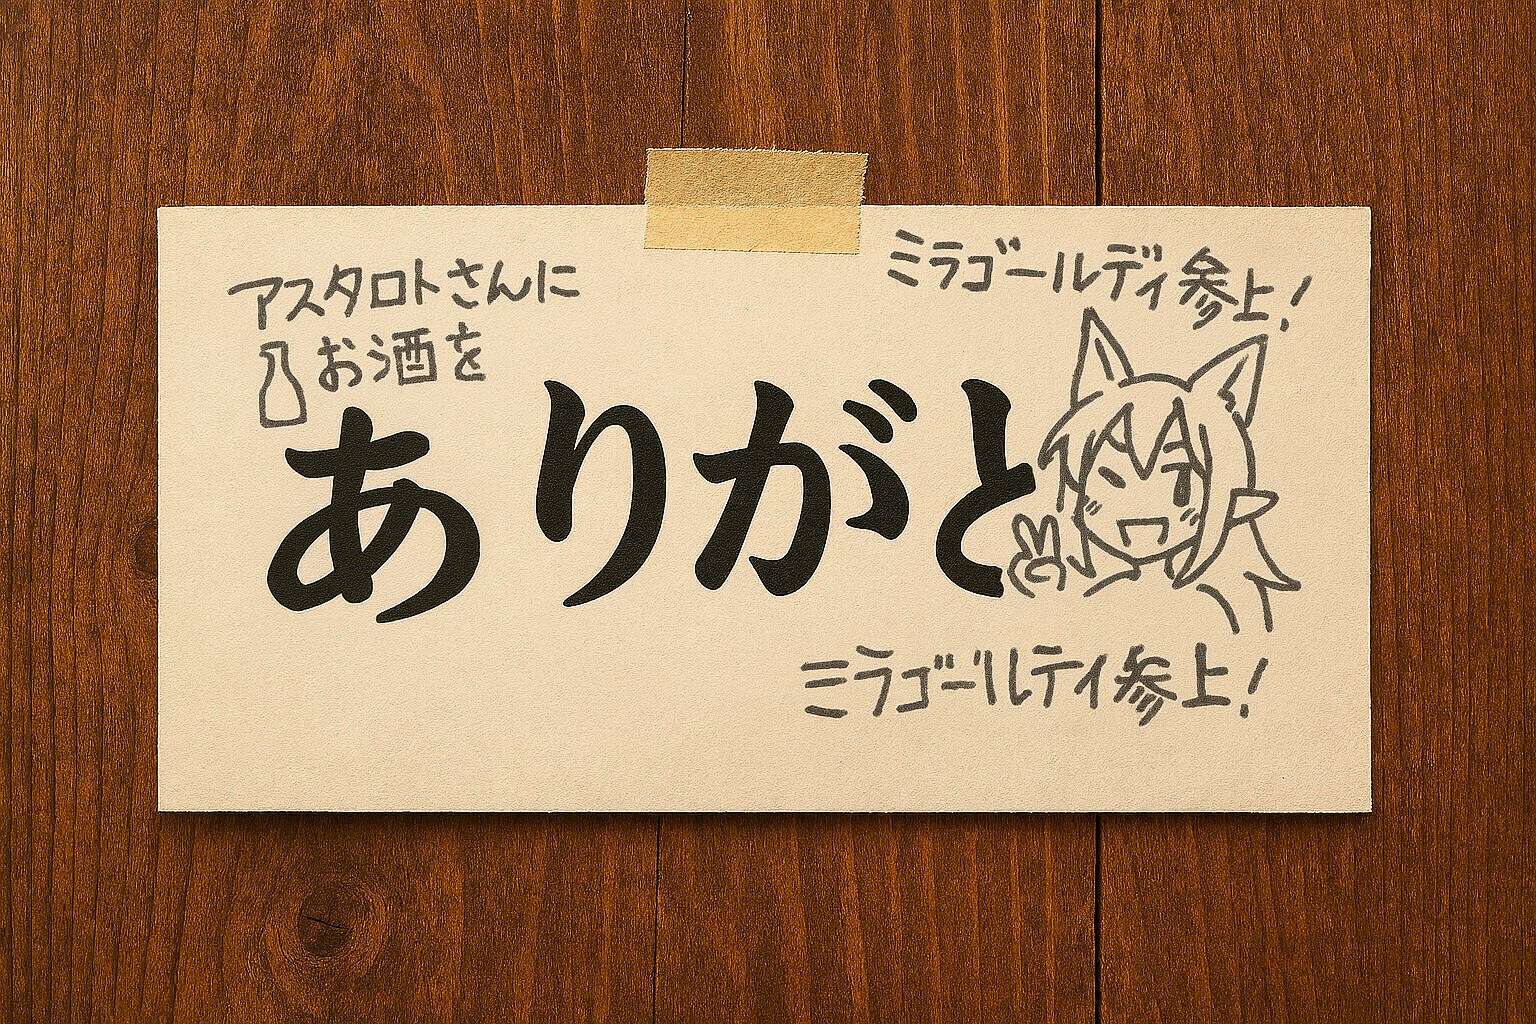 アスタロトさんに
お酒を
ミラゴールディ参上!
ありがと
ミラゴールディ参上!